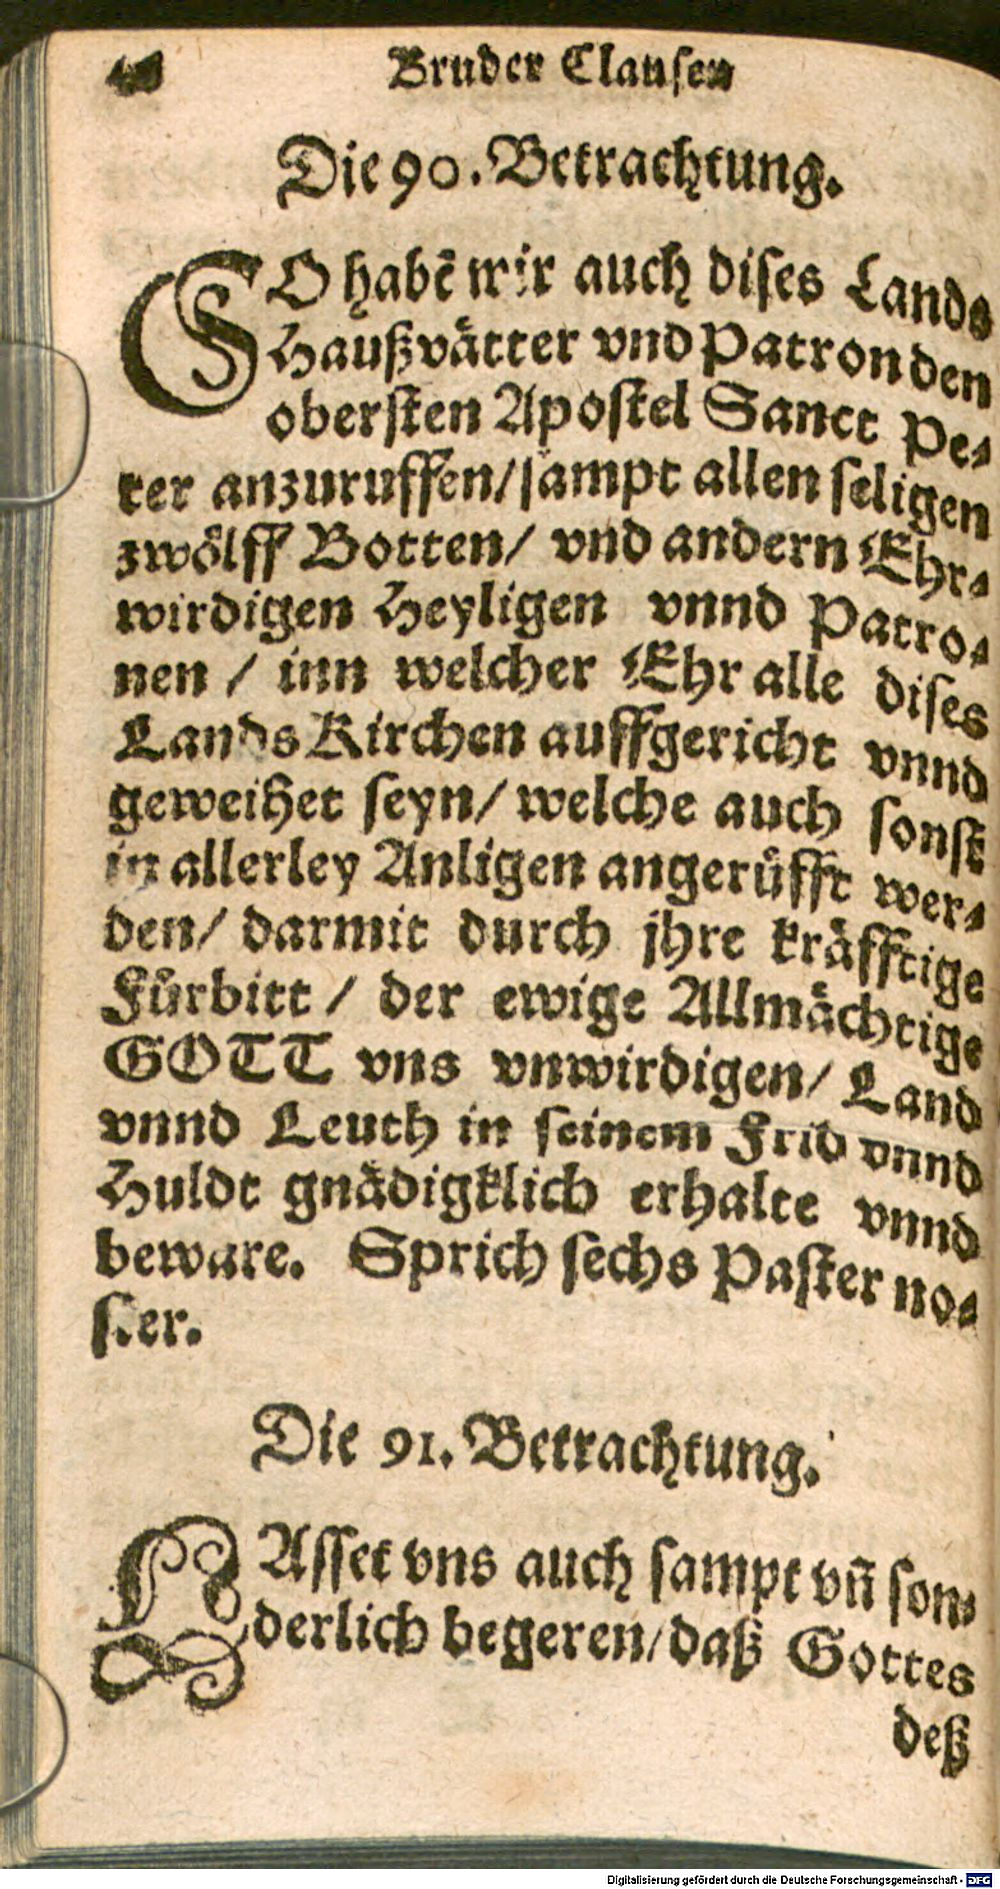 Bruder Clausen
Die 90. Betrachtung.
SO habē wir auch dises Lands
Haußvätter vnd Patron den
obersten Apostel Sanct Pe-
ter anzuruffen/ sampt allen seligen
zwölff Botten/ vnd andern Ehr-
wirdigen Heyligen vnnd Patro-
nen / inn welcher Ehr alle dises
Lands Kirchen auffgericht vnnd
geweihet seyn/ welche auch sonst
in allerley Anligen angerůfft wer-
den/ darmit durch jhre kräfftige
Fürbitt / der ewige Allmächtige
GOTT vns vnwirdigen/ Land
vnnd Leuth in seinem Frid vnnd
Huldt gnädigklich erhalte vnnd
beware. Sprich sechs Paster no-
ster.
Die 91. Betrachtung.
LAsset vns auch sampt vñ son-
derlich begeren/ daß Gottes
deß
Digitalisierung gefördert durch die Deutsche Forschungsgemeinschaft - DFG